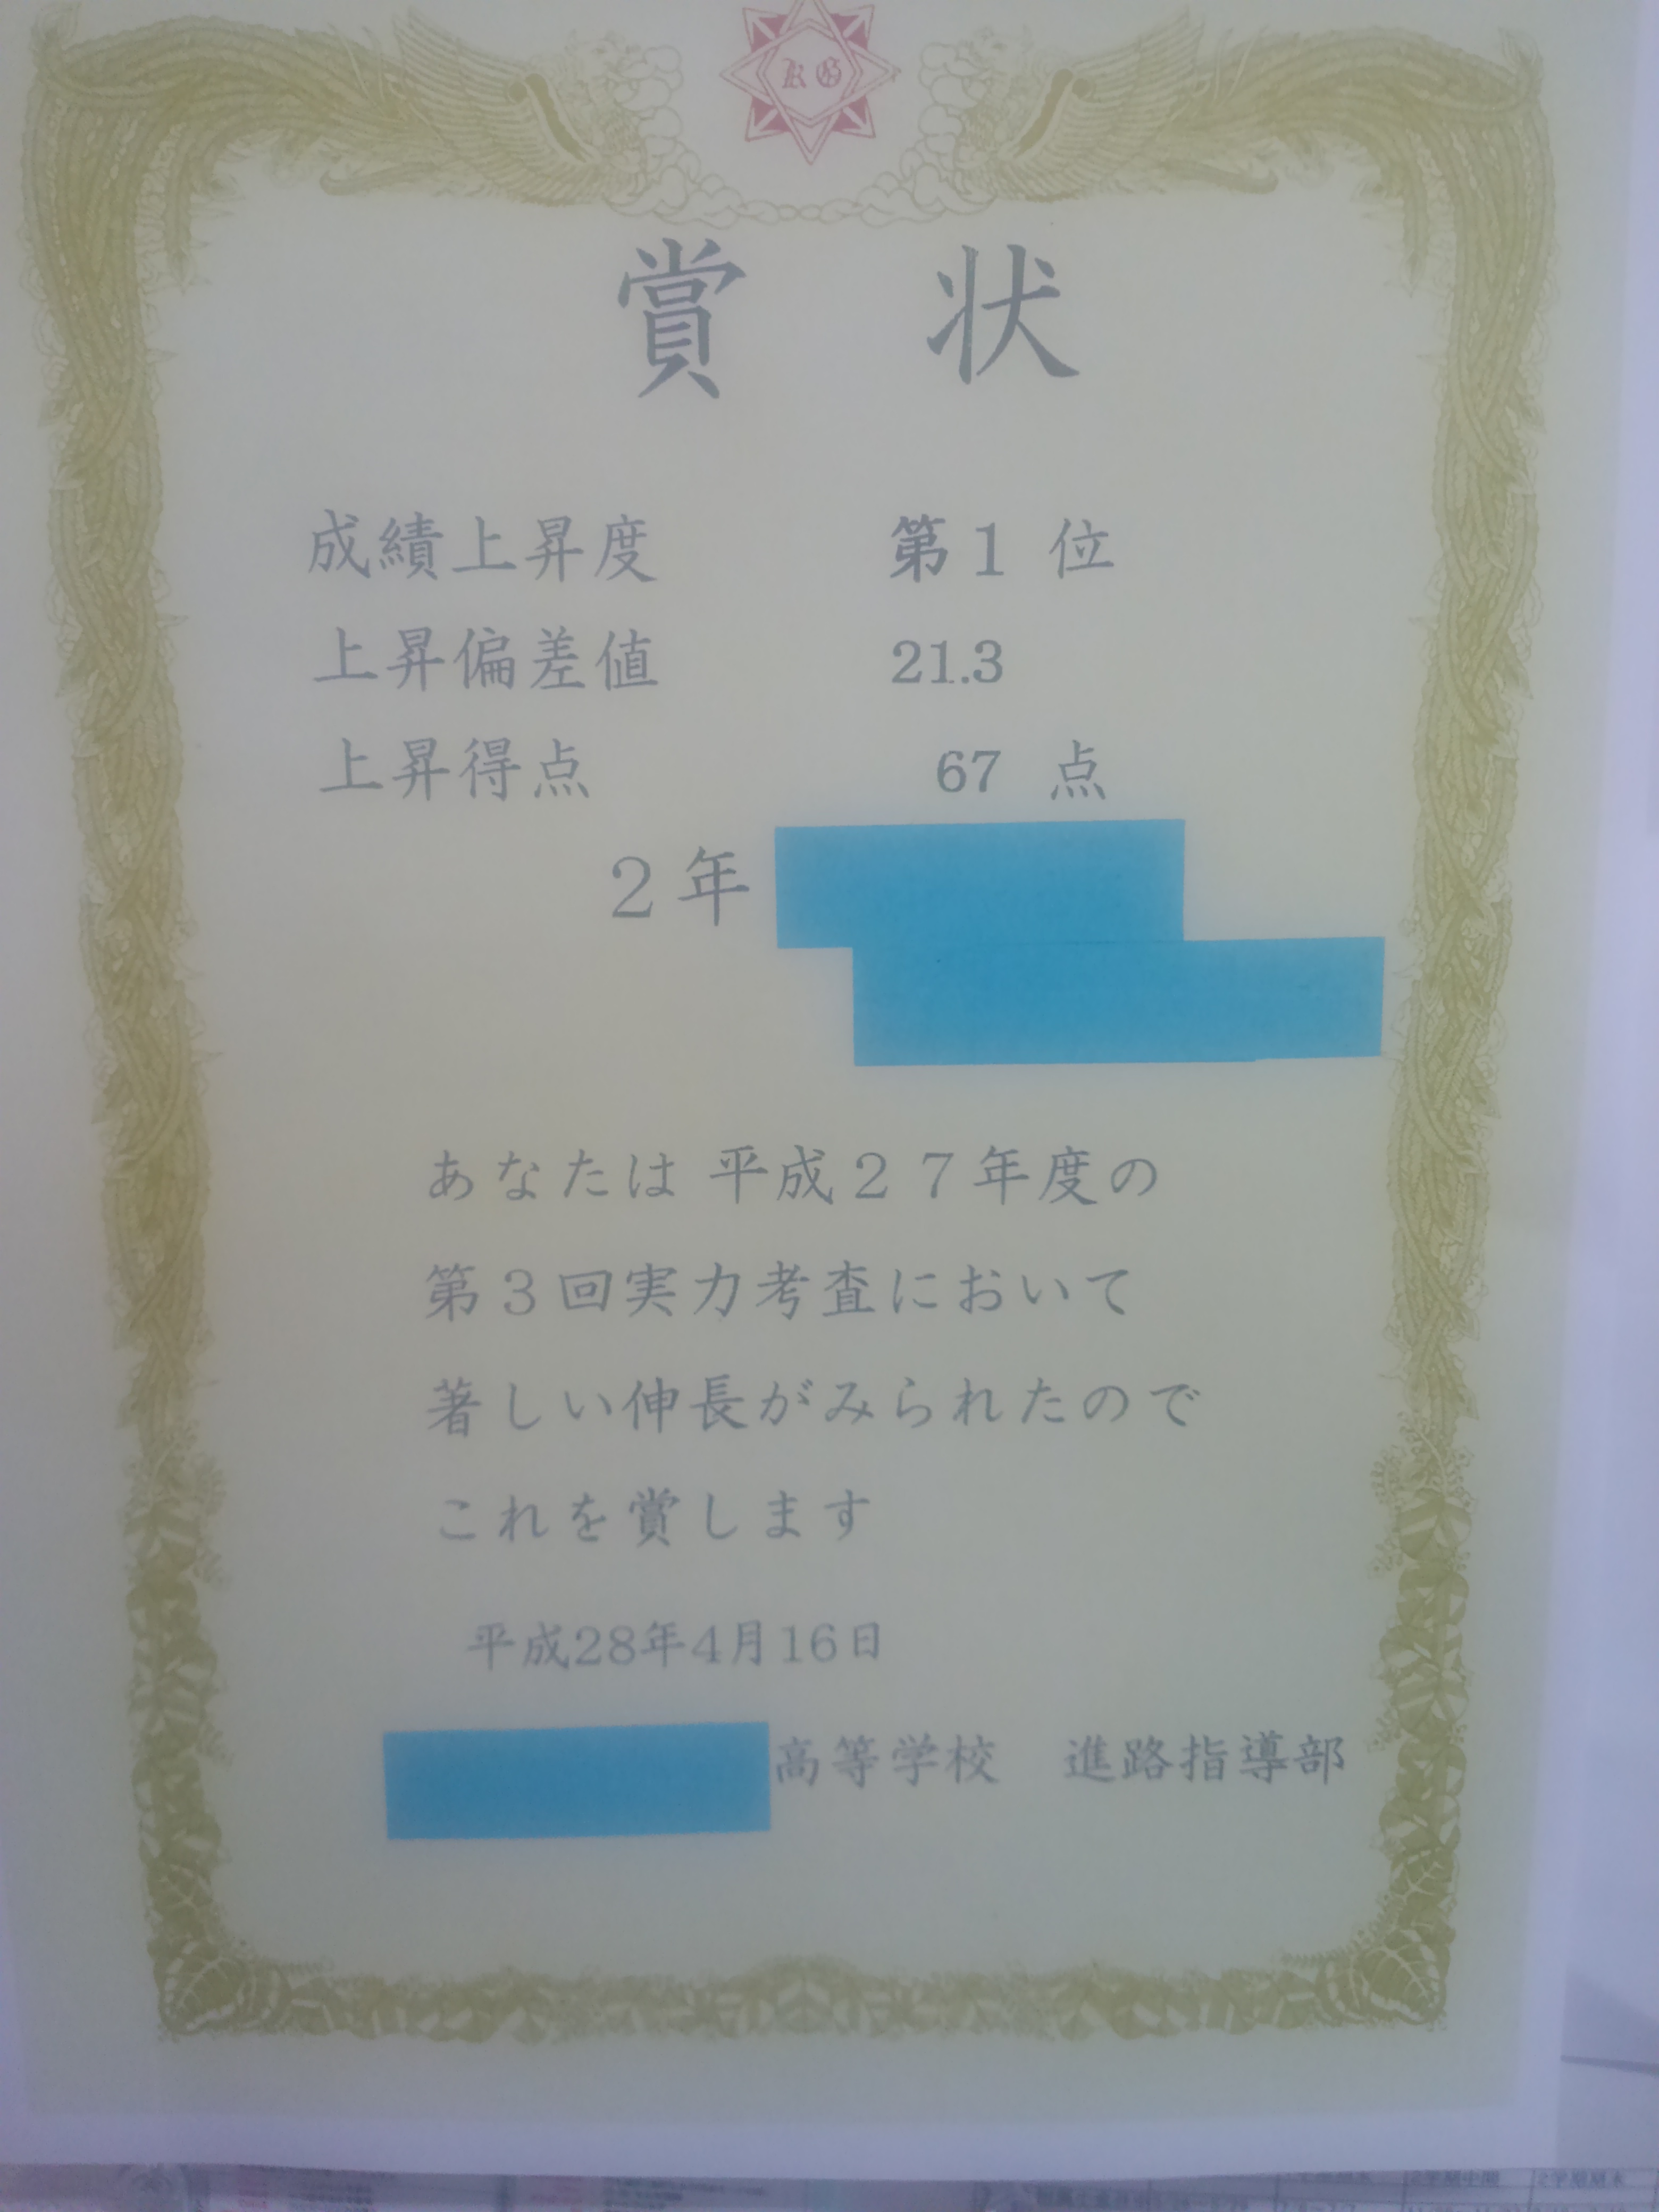 KG
賞 状
成績上昇度 第1 位
上昇偏差値 21.3
上昇得点 67 点
2年
あなたは 平成27年度の
第3回実力考査において
著しい伸長がみられたので
これを賞します
平成28年4月16日
高等学校 進路指導部
2学期中間 2学期期末